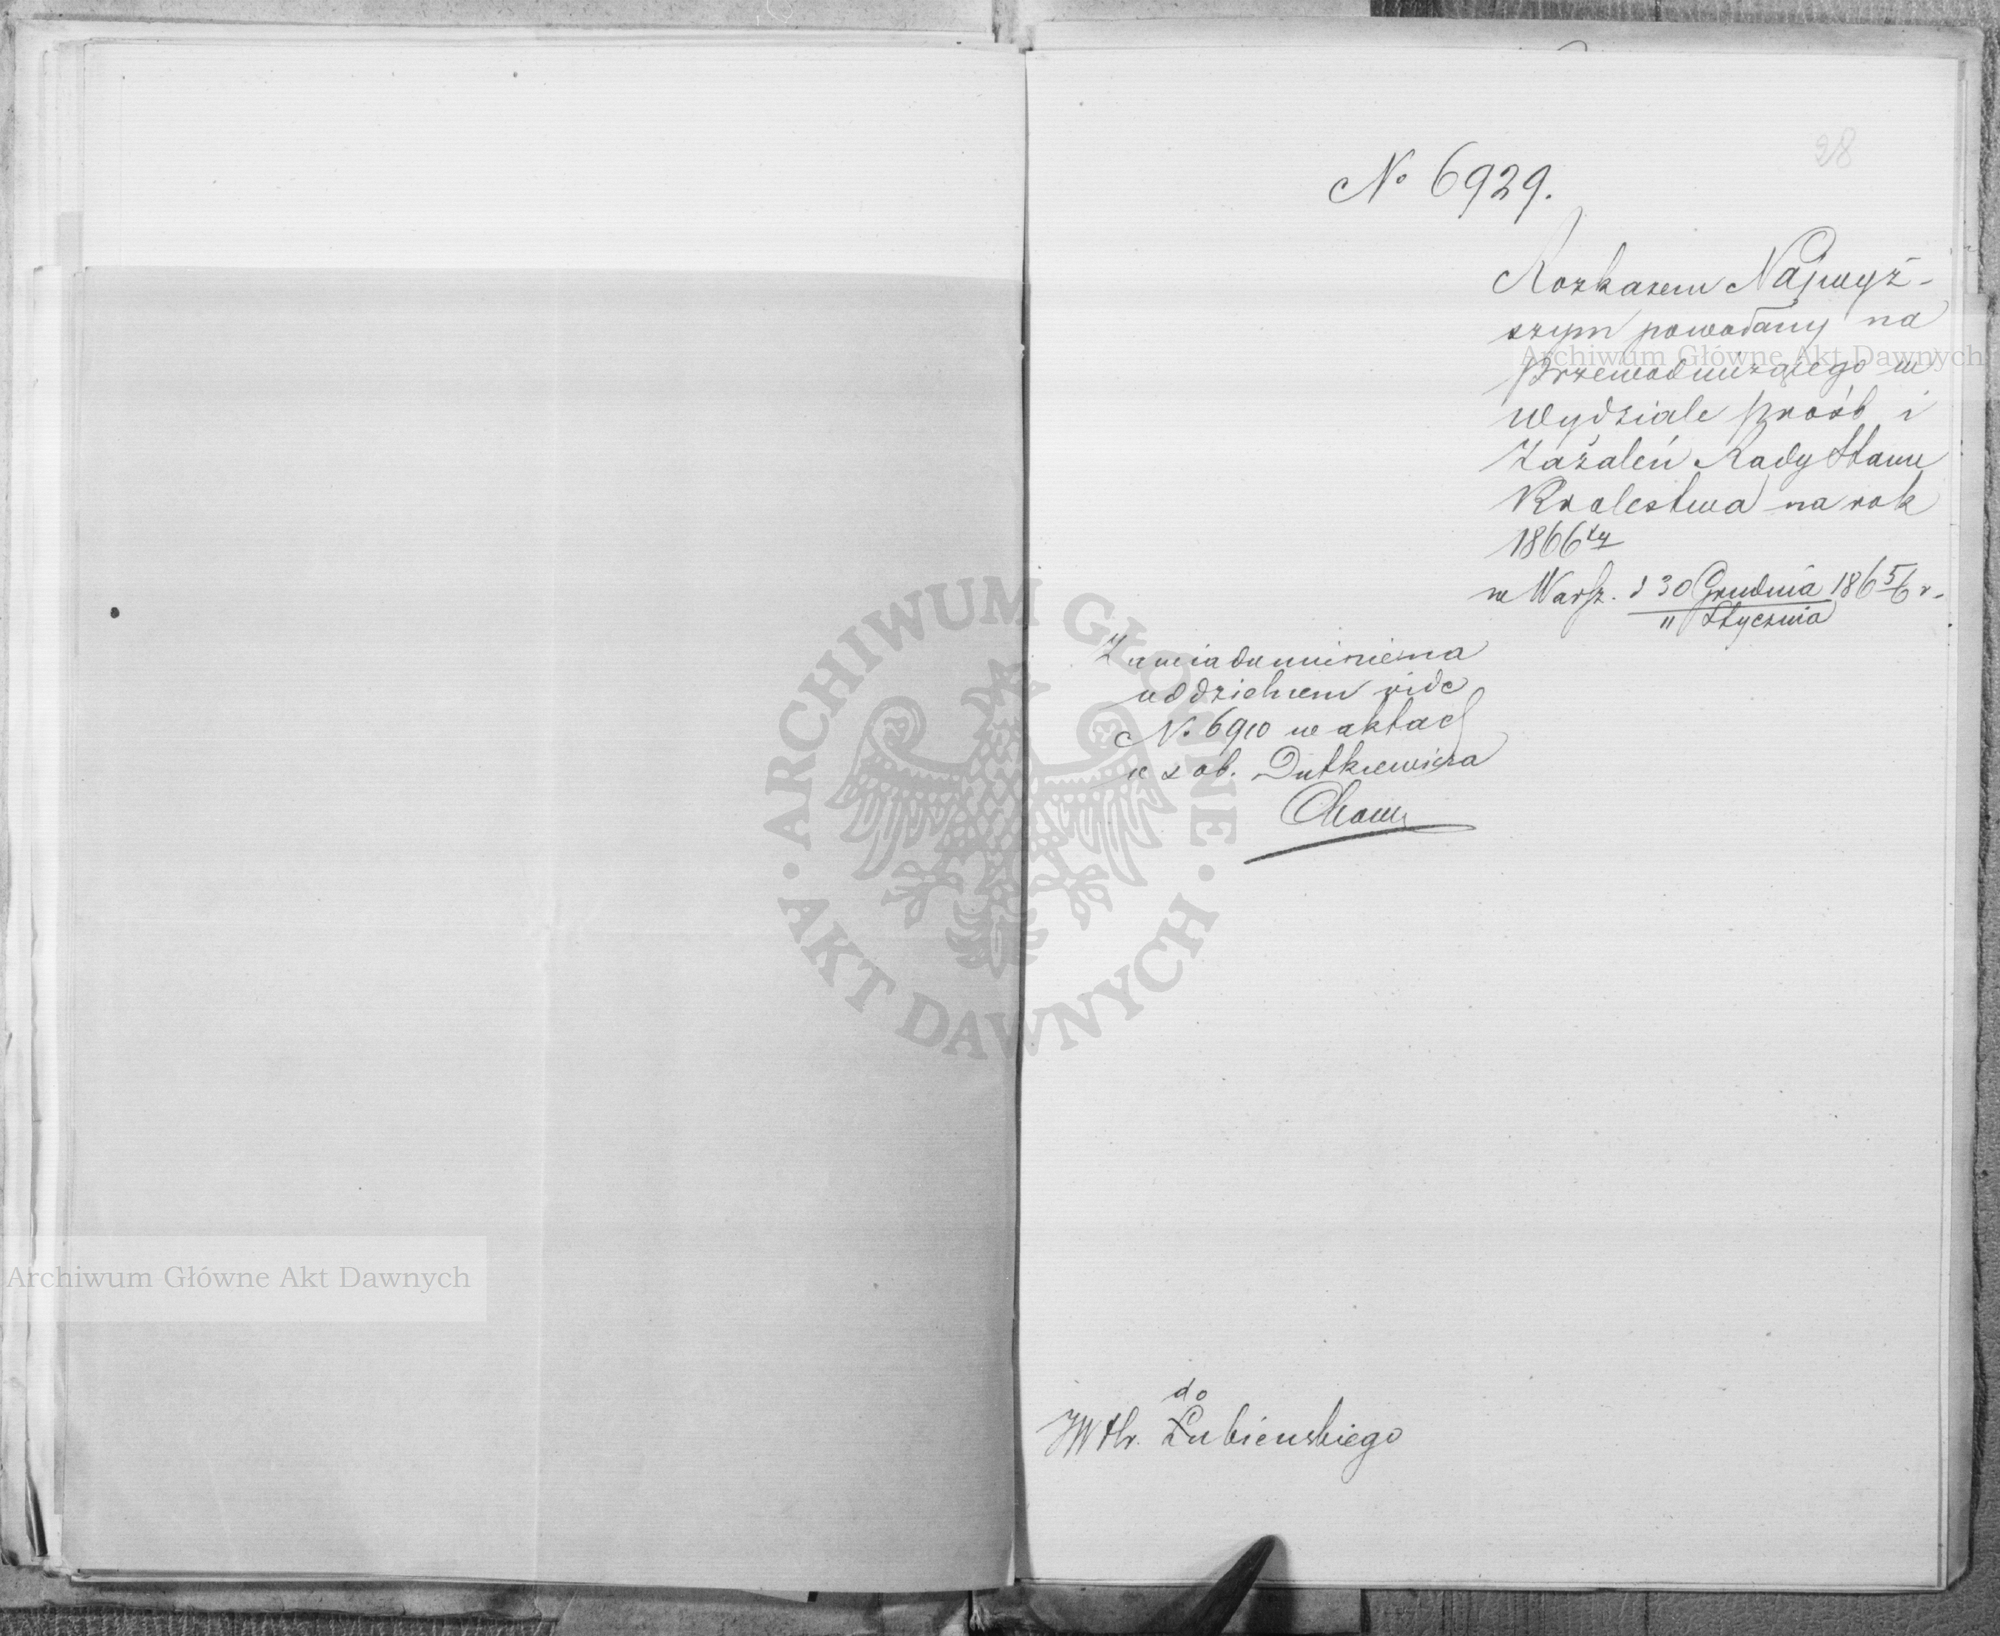 28
No 6929.
Rozkazem Najwyż-
szym powołany na
Przewodniczącego w
Wydziale prośb i
Zażaleń Rady Stanu
Krolestwa na rok
1866ty
w Warsz. d 30 Grudnia 1865/6 r.
11 Stycznia
Zawiadomienie na
oddzielnem vide
No. 6910 w aktach
Dutkiewicza
do
JW Hr. Łubieńskiego
Archiwum Główne Akt Dawnych
ARCHIWUM GŁÓWNE
AKT DAWNYCH
Archiwum Główne Akt Dawnych